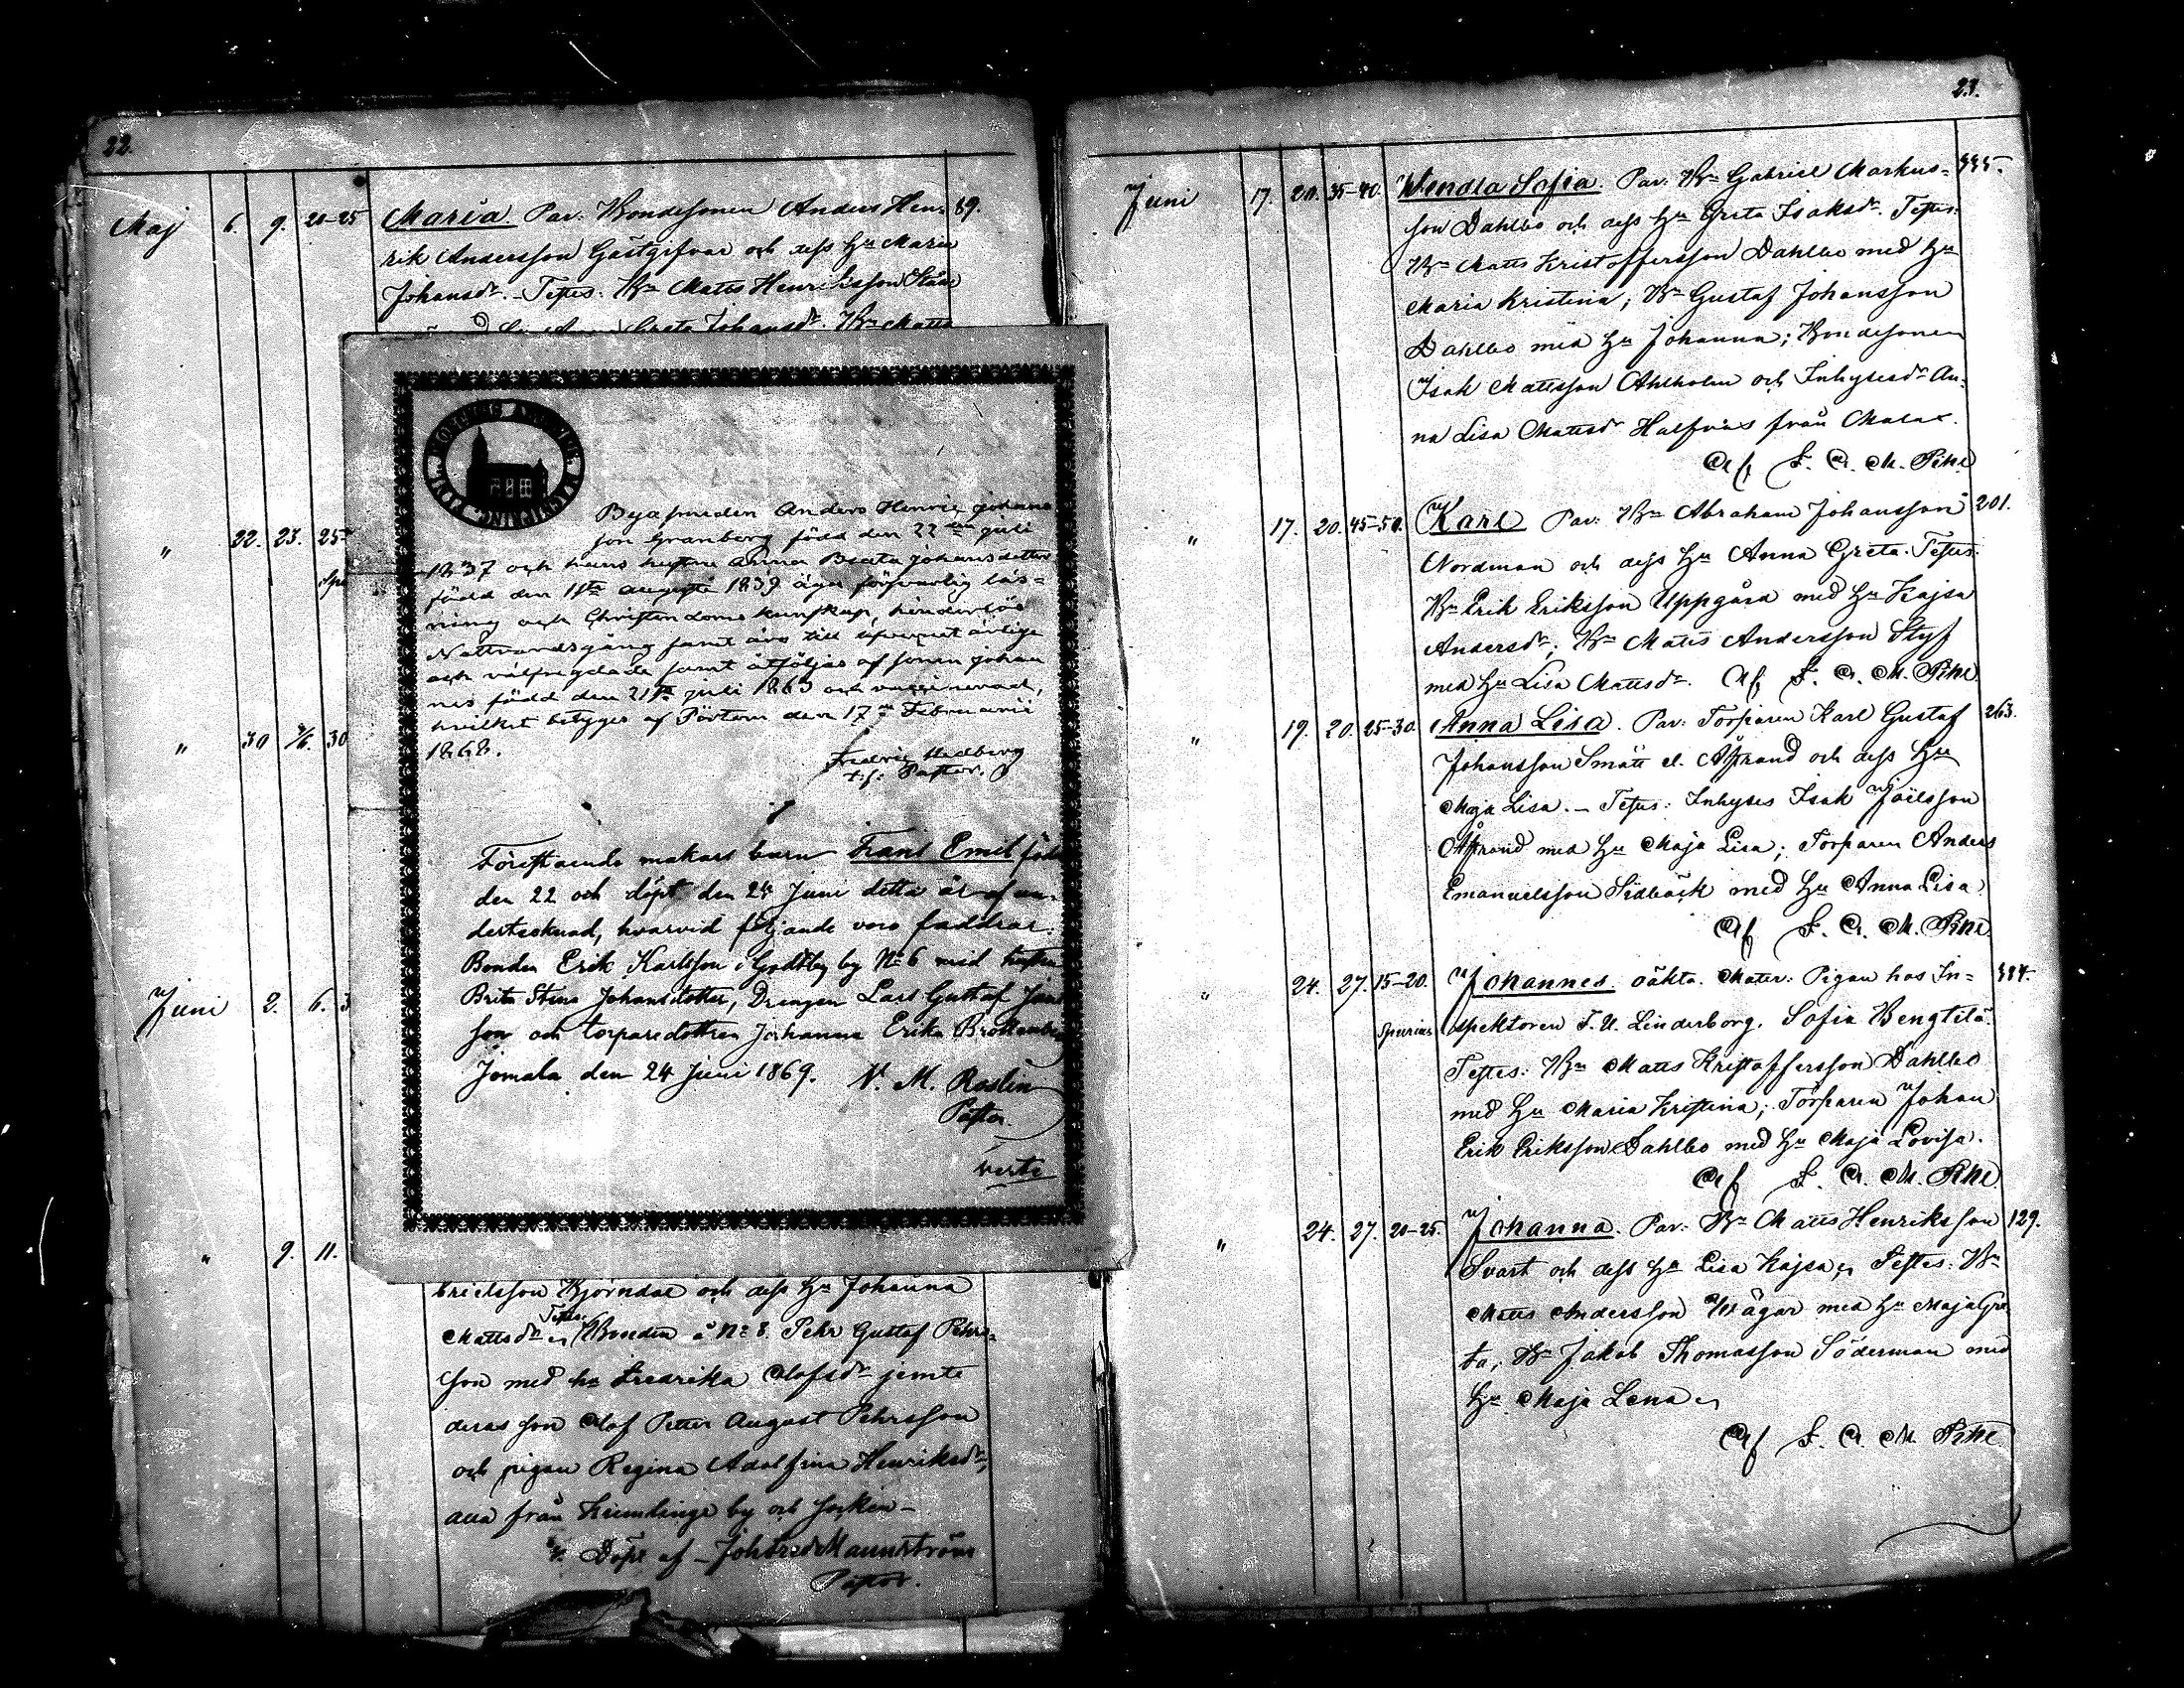 22.
Maj 6. 9. 20-25 Maria. Par: Bondesonen Anders Hen= 89.
rik Andersson Gästgifvar och dess Hu Maria
Johansdr. – Testes: Bn Matts Henriksson Stå
Greta Johansdr. Bn Matts
" 22. 23. 25
" 30 3/6. 30
Juni 2. 6. 3
" 9. 11.
Anders Henric Johans
son Granberg född den 22dra juli
1837 och hans hustru Anna Beata Johansdotter
född den 11te augusti 1839 äga försvarlig läs=
ning och Christendoms kunskap, hinderlös
Nattvardsgång samt äro till uppförandet ärlige
och välfrejdade samt åtföljas af sonen Johan
född den 21sta juli 1863 och vaccinerad,
hvilket betygas af Pörtom den 17de Februarii
1868.
Fredric Hedberg
t.f. Pastor.
Föreståends makars barn Frans Emil föd
den 22 och döpt den 24 Juni detta år af un=
dertecknad, hvarvid följande voro faddrar:
Bonden Erik Karlsson i Godtby by No 6 med hustru
Brita Stina Johansdotter, Drengen Lars Gustaf Jans
son och torparedottren Johanna Erika
Jomala den 24 Juni 1869. N. M. Roslin
Pastor.
verte
Ericsson Björndal och dess Hu Johanna
Testes:
Mattsdr Bonden å No 8. Pehr Gustaf Pehrs=
son med hu Fredrika Olofsdr jemte
deras son Olof Petter August Pehrsson
och pigan Regina Adolfina Henriksdr,
alla från Kumlinge by och socken –
Döpt af – Mannström
Pastor.
23.
Juni 17. 20. 35-40. Wendla Sofia. Par: Bn Gabriel Markus= 335.
son Dahlbo och dess Hu Greta Isaksdr. Testes:
Bn Matts Kristoffersson Dahlbo med Hu
Maria Kristina; Bn Gustaf Johansson
Dahlbo med Hu Johanna; Bondesonen
Isak Mattsson Ahlholm och Inhysesdr An=
na Lisa Mattsdr Halfvars från Malax.
Af F. A. M. Pihl
" 17. 20. 45-50. Karl Par: Bn Abraham Johansson 201.
Nordman och dess Hu Anna Greta. Testes:
Bn Erik Eriksson Uppgård med Hu Kajsa
Andersdr; Bn Matts Andersson Styf
med Hu Lisa Mattsdr. Af F. A. M. Pihl
" 19. 20. 25-30. Anna Lisa. Par: Torparen Karl Gustaf 263.
Johansson Smått el. Åstrand och dess Hu
Maja Lisa. – Testes: Inhyses Isak Joelsson
Åstrand med Hu Maja Lisa; Torparen Anders
Emanuelsson Sidbäck med Hu Anna Lisa
Af F. A. M. Pihl
" 24. 27. 15-20. Johannes. oäkta. Mater: Pigan hos In= 334.
Spurius spektoren F. U. Linderborg. Sofia Bengtsdr.
Testes: Bn Matts Kristoffersson Dahlbo
med Hu Maria Kristina; Torparen Johan
Erik Eriksson Dahlbo med Hu Maja Lovisa.
Af F. A. M. Pihl
" 24. 27. 20-25. Johanna. Par: Bn Matts Henriksson 129.
Svart och dess Hu Lisa Kajsa, Testes: Bn
Matts Andersson Wägar med Hu Maja Gre
ta, Bn Jakob Thomasson Söderman med
Hu Maja Lena
Af F. A. M. Pihl